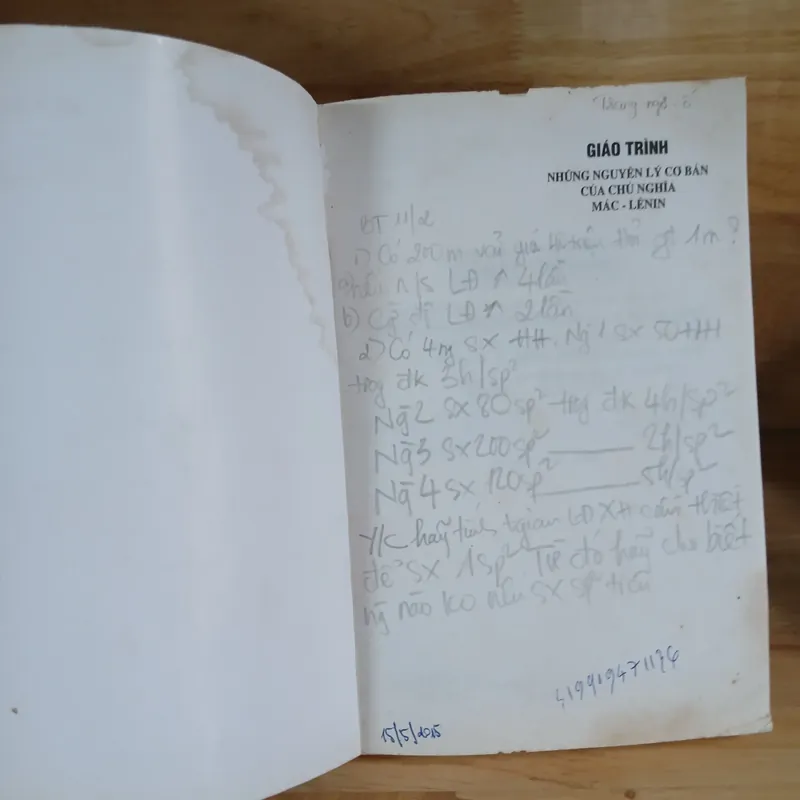 GIÁO TRÌNH
NHỮNG NGUYÊN LÝ CƠ BẢN
CỦA CHỦ NGHĨA
MÁC - LÊNIN
BT 11/2
1) Có 200m vải giá 1m?
n/s LĐ ↑ 4 lần
b) Cg độ LĐ ↑ 2 lần
2) Có 4 ng SX HH. Ng 1 SX 50HH
trg đk 3h/sp²
Ng 2 SX 80sp² trg đk 4h/sp²
Ng 3 SX 200sp² ____ 2h/sp²
Ng 4 SX 120sp² ____ 5h/sp²
Y/C hãy tính tgian LĐXH cần thiết
để SX 1sp². Từ đó hãy cho biết
ng nào ko nên SX sp²
15/5/2015